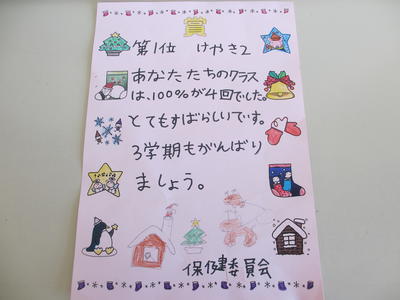 賞
第1位 けやき2
あなたたちのクラス
は、100%が4回でした。
とてもすばらしいです。
3学期もがんばり
ましょう。
保健委員会